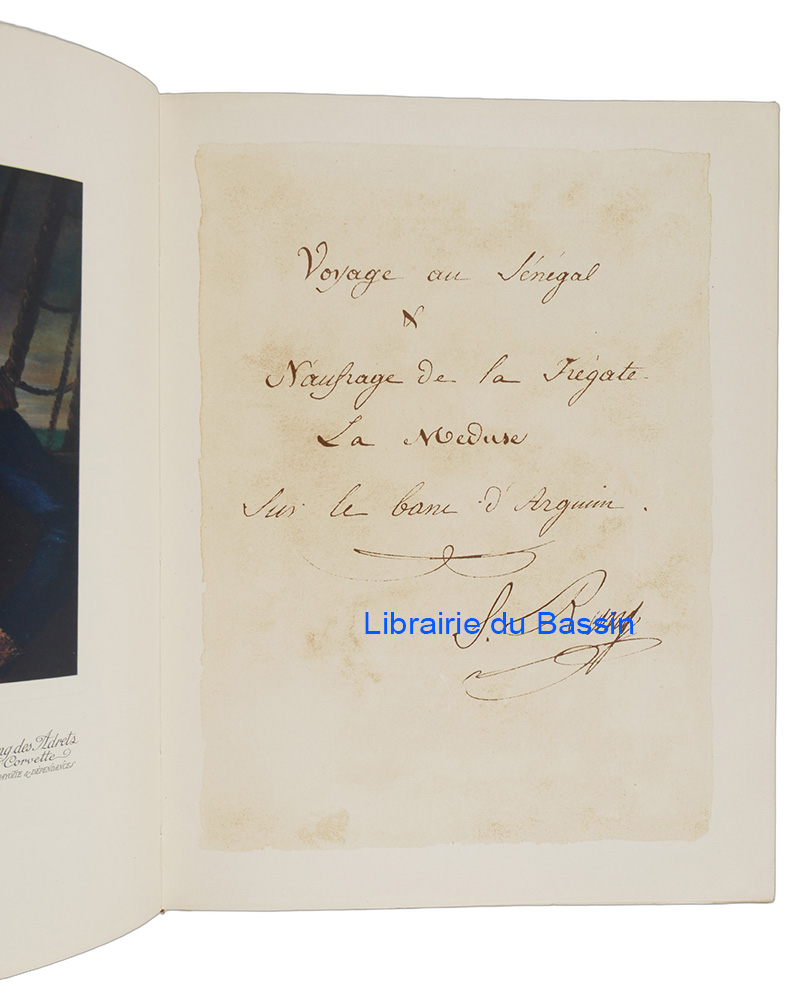 ng des Adrets
Corvette
& DÉPENDANCES
Voyage au Sénégal
&
Naufrage de la Frégate
La Meduse
Sur le banc d'Arguin.
S. Rang
Librairie du Bassin